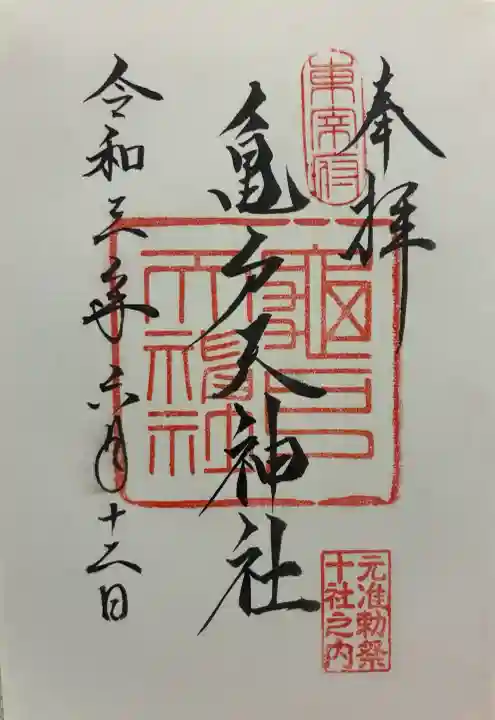 奉拝
東宰府
亀戸天神社
元准勅祭
十社之内
令和三年六月十二日